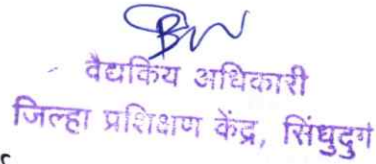 वैद्यकिय अधिकारी
जिल्हा प्रशिक्षण केंद्र, सिंधुदुर्ग